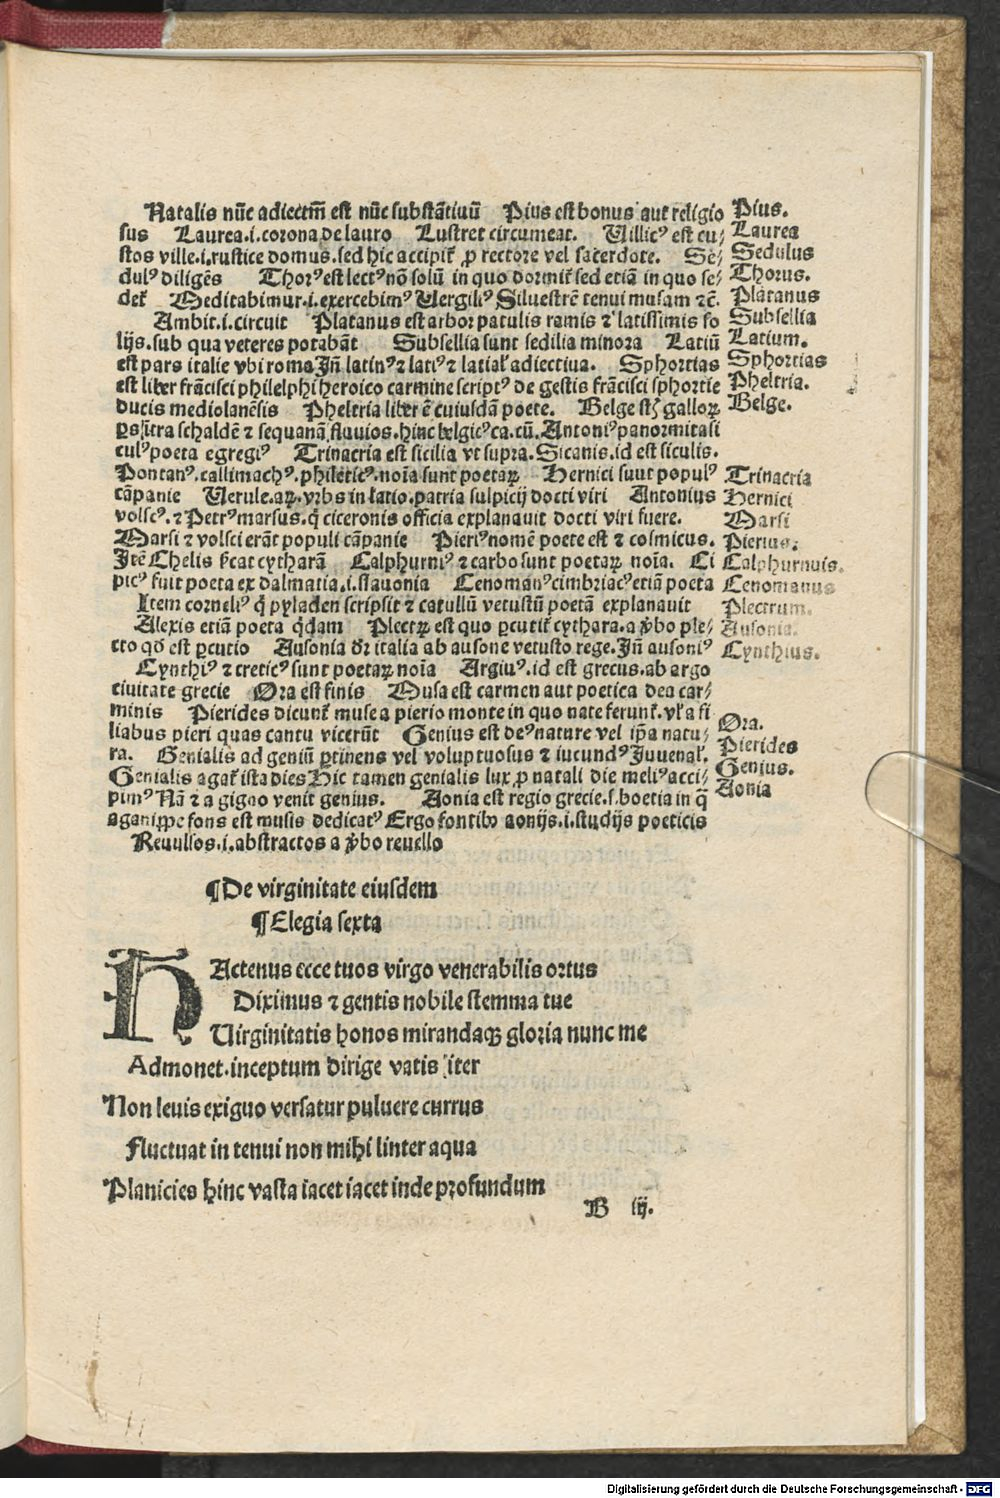 Natalis nūc adiectīū est nūc substātiuū Pius est bonus aut religio
sus Laurea.i.corona de lauro Lustret circumeat. Uillicꝰ est cu⸗
stos ville.i.rustice domus.sed hic accipit̄ ꝓ rectore vel sacerdote. Se⸗
dulꝰ diligēs Thorꝰ est lectꝰ nō solū in quo dormit̄ sed etiā in quo se⸗
det̄ Meditabimur.i.exercebimꝰ Uergiliꝰ Siluestrē tenui musam ⁊cē.
Ambit.i.circuit Platanus est arbor patulis ramis et latissimis fo
lijs.sub qua veteres potabāt Subsellia sunt sedilia minora Latiū
est pars italie vbi roma Jn̄ latinꝰ ⁊ latiꝰ ⁊ latial̄ adiectiua. Sphortias
est liber frācisci philelphi heroico carmine scriptꝰ de gestis frācisci sphortie
ducis mediolanēsis Pheltria liber ē cuiusdā poete. Belge st̄ galloꝝ
ꝑs intra schaldē ⁊ sequanā fluuios.hinc belgicꝰ ca.cū. Antoniꝰ panormitasi
culꝰ poeta egregiꝰ Trinacria est sicilia vt supra. Sicanis.id est siculis.
Pontanꝰ.callimachꝰ.phileticꝰ.noīa sunt poetaꝝ Hernici suut populꝰ
cāpanie Uerule.aꝝ.vrbs in latio.patria sulpicij docti viri Antonius
volscꝰ.⁊ Petrꝰ marsus.q̄ ciceronis officia explanauit docti viri fuere.
Marsi ⁊ volsci erāt populi cāpanie Pieriꝰ nomē poete est ⁊ cosmicus.
Jtē Chelis sc̄at cytharā Calphurniꝰ ⁊ carbo sunt poetaꝝ noīa. Ci
picꝰ fuit poeta ex dalmatia.i.slauonia Cenomanꝰ cimbriacꝰ etiā poeta
Item corneliꝰ q̄ pyladen scripsit ⁊ catullū vetustū poetā explanauit
Alexis etiā poeta q̄dam Plectꝝ est quo ꝑcutit̄ cythara.a ꝟbo ple⸗
cto qd̄ est ꝑcutio Ausonia dr̄ italia ab ausone vetusto rege. Jn̄ ausoniꝰ
Cynthiꝰ ⁊ creticꝰ sunt poetaꝝ noīa Argiuꝰ.id est grecus.ab argo
ciuitate grecie Ora est finis Musa est carmen aut poetica dea car⸗
minis Pierides dicunt̄ muse a pierio monte in quo nate ferunt̄.vl̄ a fi
liabus pieri quas cantu vicerūt Genius est deꝰ nature vel ip̄a natu⸗
ra. Genialis ad geniū ꝑtinens vel voluptuosus ⁊ iucundꝰ Juuenal̄.
Genialis agat̄ ista dies Hic tamen genialis lux ꝓ natali die meliꝰ acci⸗
pimꝰ Nā ⁊ a gigno venit genius. Aonia est regio grecie.s.boetia in q̄
aganippe fons est musis dedicatꝰ Ergo fontibꝰ aonijs.i.studijs poeticis
Reuulsos.i.abstractos a ꝟbo reuello
Pius.
Laurea
Sedulus
Thorus.
Platanus
Subsellia
Latium.
Sphortias
Pheltria.
Belge.
Trinacria
Hernici
Marsi
Pierius.
Calphurnuis.
Cenomanus
Plectrum.
Ausonia.
Cynthius.
Ora.
Pierides
Genius.
Aonia
¶De virginitate eiusdem
¶Elegia sexta
HActenus ecce tuos virgo venerabilis ortus
Diximus ⁊ gentis nobile stemma tue
Uirginitatis honos mirandaqꝫ gloria nunc me
Admonet.inceptum dirige vatis iter
Non leuis exiguo versatur puluere currus
Fluctuat in tenui non mihi linter aqua
Planicies hinc vasta iacet iacet inde profundum
B iij.
Digitalisierung gefördert durch die Deutsche Forschungsgemeinschaft - DFG